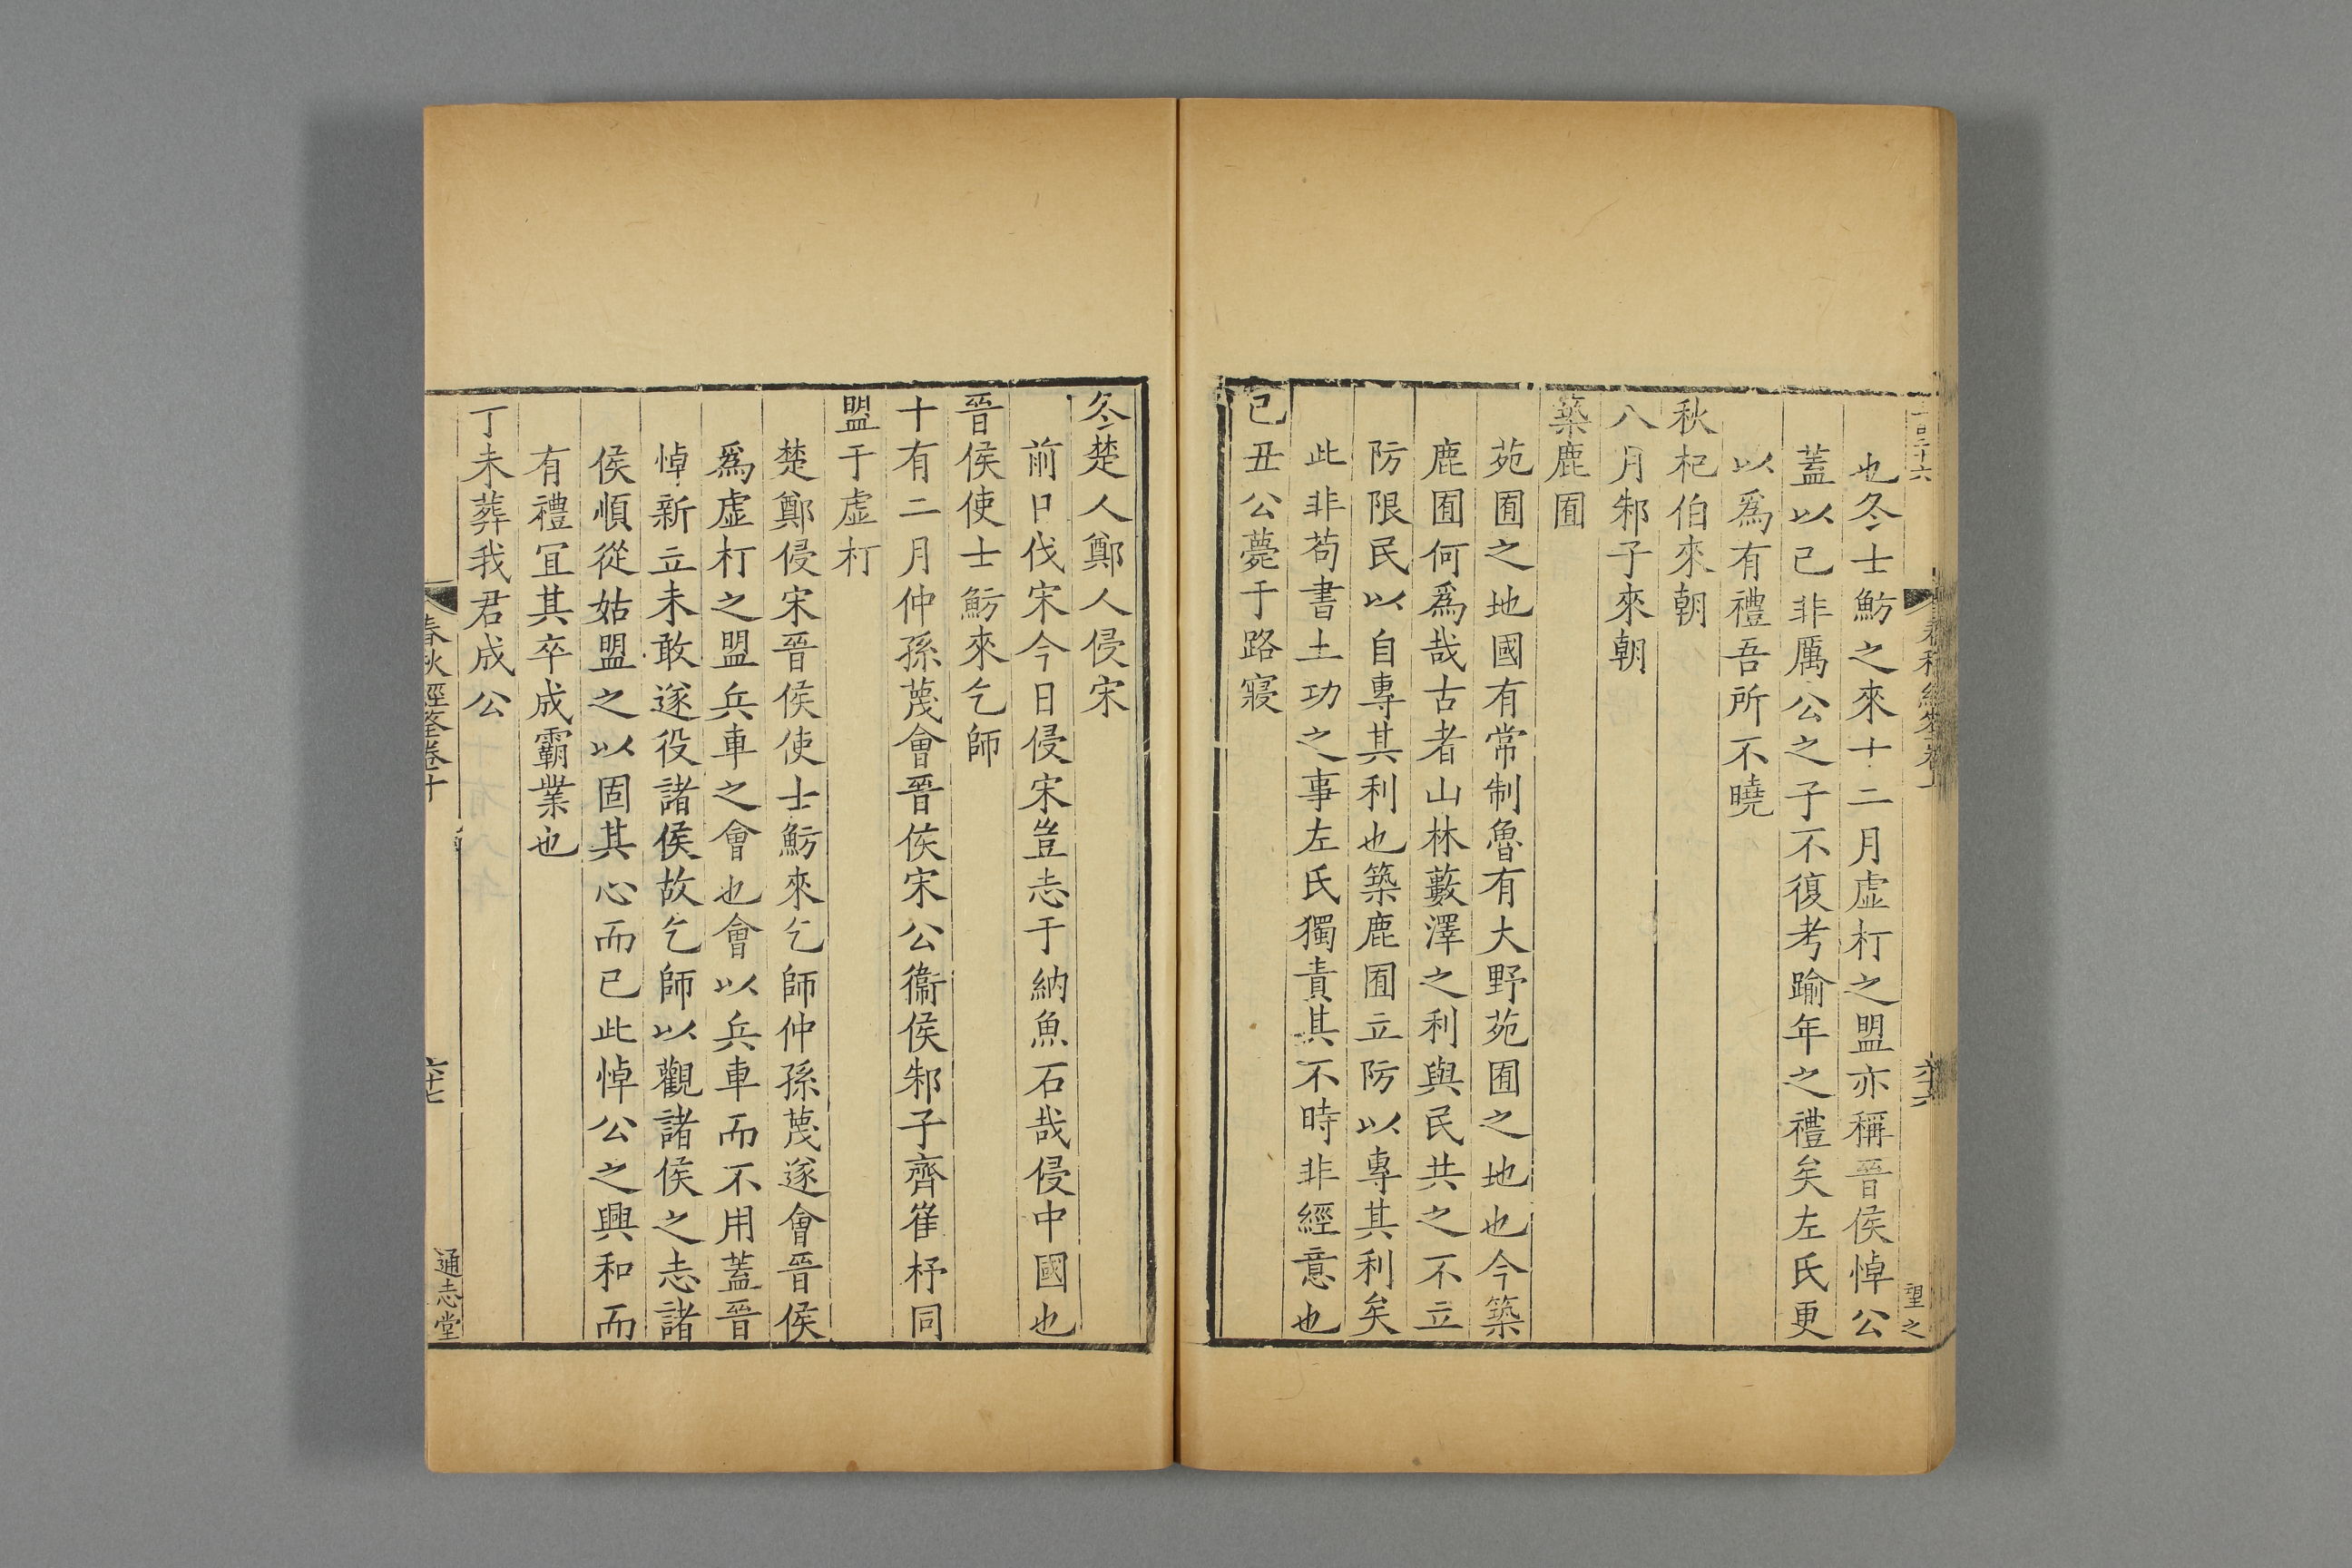 也冬士魴之來十二月虛朾之盟亦稱晉侯悼公
蓋以已非厲公之子不復考踰年之禮矣左氏更
以爲有禮吾所不曉
秋杞伯來朝
八月邾子來朝
築鹿囿
苑囿之地國有常制魯有大野苑囿之地也今築
鹿囿何爲哉古者山林藪澤之利與民共之不立
防限民以自專其利也築鹿囿立防以專其利矣
此非苟書土功之事左氏獨責其不時非經意也
已丑公薨于路寢
冬楚人鄭人侵宋
前日伐宋今日侵宋豈志于納魚石哉侵中國也
晉侯使士魴來乞師
十有二月仲孫蔑會晉侯宋公衞侯邾子齊崔杼同
盟于虛朾
楚鄭侵宋晉侯使士魴來乞師仲孫蔑遂會晉侯
爲虛朾之盟兵車之會也會以兵車而不用蓋晉
悼新立未敢遂役諸侯故乞師以觀諸侯之志諸
侯順從姑盟之以固其心而已此悼公之興和而
有禮宜其卒成霸業也
丁未葬我君成公
春秋經筌卷十
六十七
通志堂
望之